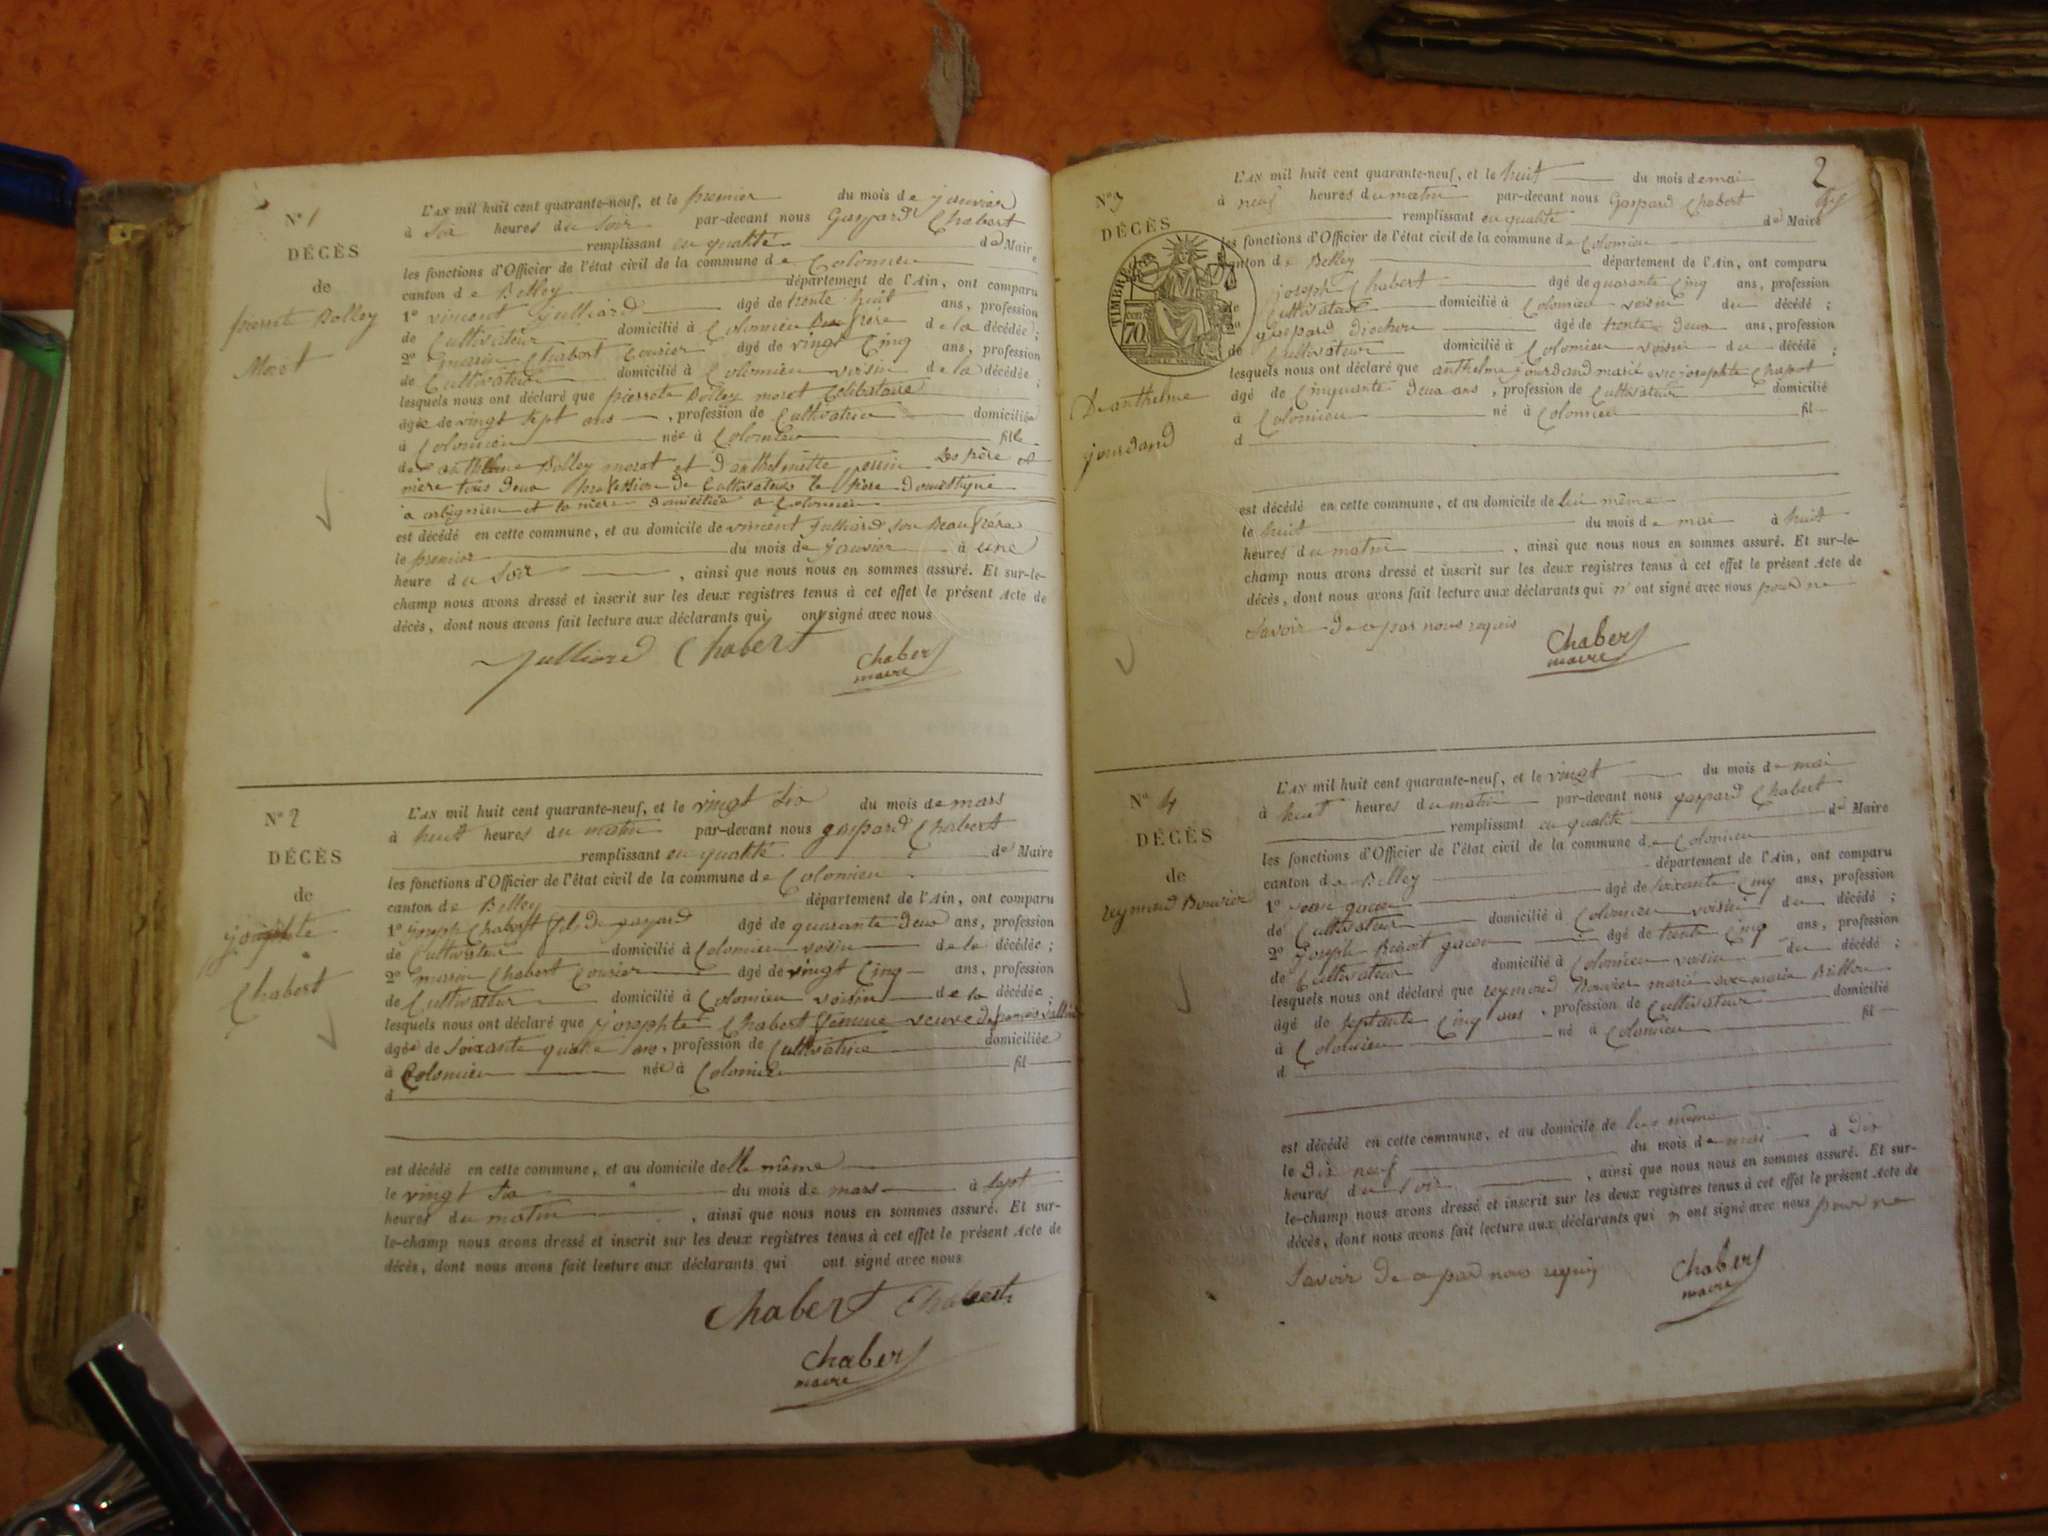 N° 1
DÉCÈS
de
pierrette Bolley
Moret
L'AN mil huit cent quarante-neuf, et le premier du mois de janvier
à six heures du soir par-devant nous Gaspard Chabert
remplissant en qualité de Maire
les fonctions d'Officier de l'état civil de la commune de Colomieu
canton de Belley département de l'Ain, ont comparu
1° vincent Julliard agé de trente huit ans, profession
de Cultivateur domicilié à Colomieu Beau frère de la décédée;
2° Chabert Courier agé de vingt Cinq ans, profession
de Cultivateur domicilié à Colomieu voisin de la décédée;
lesquels nous ont déclaré que pierrette Bolley moret Célibataire
agée de vingt sept ans, profession de Cultivatrice domiciliée
à Colomieu née à Colomieu fille
de anthelme Bolley moret et d'anthelmette Les père et
mère tous deux profession de Cultivateurs le père Domestique
a arbignieu et la mère domiciliée a Colomieu
est décédé en cette commune, et au domicile de vincent Julliard son Beau frère
le premier du mois de janvier à une
heure du soir, ainsi que nous nous en sommes assuré. Et sur-le-
champ nous avons dressé et inscrit sur les deux registres tenus à cet effet le présent Acte de
décès, dont nous avons fait lecture aux déclarants qui ont signé avec nous
Julliard Chabert
Chabert
maire
N° 2
DÉCÈS
de
josephte
Chabert
L'AN mil huit cent quarante-neuf, et le vingt six du mois de mars
à huit heures du matin par-devant nous gaspard Chabert
remplissant en qualité de Maire
les fonctions d'Officier de l'état civil de la commune de Colomieu
canton de Belley département de l'Ain, ont comparu
1° joseph Chabert agé de quarante deux ans, profession
de Cultivateur domicilié à Colomieu voisin de la décédée;
2° Chabert Courier agé de vingt Cinq ans, profession
de Cultivateur domicilié à Colomieu voisin de la décédée;
lesquels nous ont déclaré que josephte Chabert femme veuve de françois
agée de soixante quatre ans, profession de Cultivatrice domiciliée
à Colomieu née à Colomieu fil
d
est décédé en cette commune, et au domicile delle même
le vingt six du mois de mars à sept
heures du matin, ainsi que nous nous en sommes assuré. Et sur-
le-champ nous avons dressé et inscrit sur les deux registres tenus à cet effet le présent Acte de
décès, dont nous avons fait lecture aux déclarants qui ont signé avec nous
Chabert Chabert
Chabert
maire
2
N° 3
DÉCÈS
TIMBRE
70
De anthelme
jourdand
L'AN mil huit cent quarante-neuf, et le huit du mois de mai
à neuf heures du matin par-devant nous Gaspard Chabert
remplissant en qualité de Maire
les fonctions d'Officier de l'état civil de la commune de Colomieu
canton de Belley département de l'Ain, ont comparu
joseph Chabert agé de quarante Cinq ans, profession
de Cultivateur domicilié à Colomieu voisin du décédé;
2° gaspard agé de trente deux ans, profession
de Cultivateur domicilié à Colomieu voisin du décédé;
lesquels nous ont déclaré que anthelme jourdand marié avec josephte Chapot
agé de Cinquante deux ans, profession de Cultivateur domicilié
à Colomieu né à Colomieu fil
d
est décédé en cette commune, et au domicile de lui même
le huit du mois de mai à huit
heures du matin, ainsi que nous nous en sommes assuré. Et sur-le-
champ nous avons dressé et inscrit sur les deux registres tenus à cet effet le présent Acte de
décès, dont nous avons fait lecture aux déclarants qui n'ont signé avec nous pour ne
savoir de ce par nous requis
Chabert
maire
N° 4
DÉCÈS
de
reymond Bouvier
L'AN mil huit cent quarante-neuf, et le vingt du mois de mai
à huit heures du matin par-devant nous gaspard Chabert
remplissant en qualité de Maire
les fonctions d'Officier de l'état civil de la commune de Colomieu
canton de Belley département de l'Ain, ont comparu
1° jean gacon agé de soixante Cinq ans, profession
de Cultivateur domicilié à Colomieu voisin du décédé;
2° joseph Benoit gacon agé de trente Cinq ans, profession
de Cultivateur domicilié à Colomieu voisin du décédé;
lesquels nous ont déclaré que reymond Bouvier marié avec marie
agé de septante Cinq ans, profession de Cultivateur domicilié
à Colomieu né à Colomieu fil
d
est décédé en cette commune, et au domicile de lui même
le dix neuf du mois de mai à dix
heures du soir, ainsi que nous nous en sommes assuré. Et sur-
le-champ nous avons dressé et inscrit sur les deux registres tenus à cet effet le présent Acte de
décès, dont nous avons fait lecture aux déclarants qui n ont signé avec nous pour ne
savoir de ce par nous requis
Chabert
maire